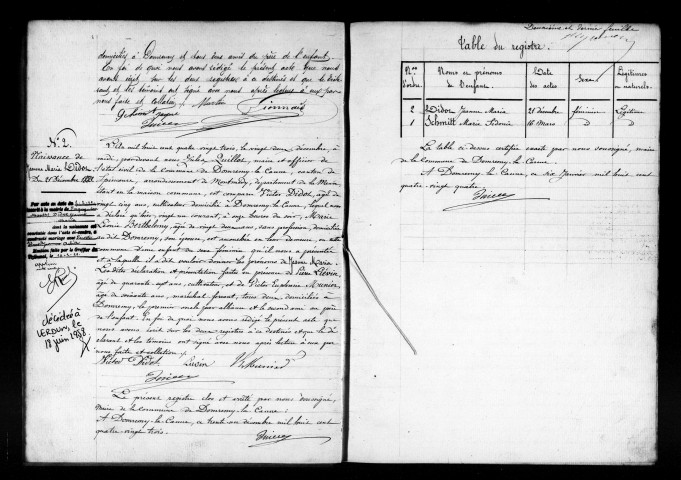 domiciliés à Domremy et tous deux amis du père de l'enfant.
En foi de quoi nous avons rédigé le présent acte que nous
avons écrit sur les deux registres à ce destinés et que le décla-
rant et les témoins ont signé avec nous après lecture à eux par
nous faite et collation.
N° 2.
Naissance de
Jeanne Maria Didot
Du 21 Décembre 1883
décédée à
VERDUN, le
18 juin 1968
L'an mil huit cent quatre vingt trois, le vingt deux décembre, à
midi, pardevant nous Jules Quillot, maire et officier de
l'état civil de la commune de Domremy-la-Canne, canton de
Spincourt, arrondissement de Montmédy, département de la Meuse,
était en la maison commune, est comparu Victor Didot, âgé de
vingt cinq ans, cultivateur domicilié à Domremy-la-Canne, lequel nous
a déclaré qu'hier, vingt un courant, à onze heures du soir, Marie
Léonie Berthelemy, âgée de vingt deux ans, sans profession, domiciliée
au dit Domremy, son épouse, est accouchée en leur demeure, en cette
commune d'un enfant du sexe féminin, qu'il nous a présenté
et à laquelle il a dit vouloir donner les prénoms de Jeanne Maria.
Lesdites déclaration et présentation faites en présence de Pierre Liévin,
âgé de quarante sept ans, cultivateur, et de Victor Euphème Munier,
âgé de soixante ans, maréchal ferrant, tous deux domiciliés à
Domremy, le premier oncle par alliance et le second ami du père
de l'enfant. En foi de quoi nous avons rédigé le présent acte que
nous avons écrit sur les deux registres à ce destinés et que le dé-
clarant et les témoins ont signé avec nous après lecture à eux par
nous faite et collation.
Victor Didot Liévin V. Munier
Le présent registre clos et arrêté par nous soussigné,
maire de la commune de Domremy-la-Canne :
A Domremy-la-Canne, ce trente un décembre mil huit cent
quatre-vingt trois.
Deuxième et dernier feuillet
Table du registre.
Nos d'ordre Noms et prénoms de l'enfant. Date des actes Sexe Légitimes ou naturels.
2 Didot Jeanne Maria 21 décembre féminin Légitime
1 Schmitt Marie Sidonie 16 Mars d° d°
La table ci-dessus certifiée exacte par nous soussigné, maire
de la Commune de Domremy-la-Canne.
A Domremy-la-Canne, ce six janvier mil huit cent
quatre-vingt quatre.